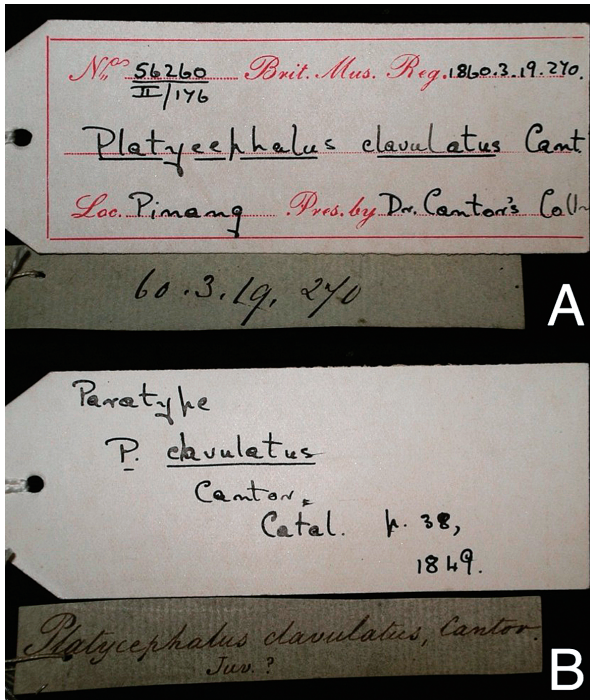 Nos. 56260 Brit. Mus. Reg. 1860.3.19.270.
II/176
Platycephalus clavulatus Cant
Loc. Pinang Pres. by Dr. Cantor's Colln
60.3.19. 270
A
Paratype
P. clavulatus
Cantor.
Catal. p. 38,
1849.
Platycephalus clavulatus, Cantor.
Juv. ?
B